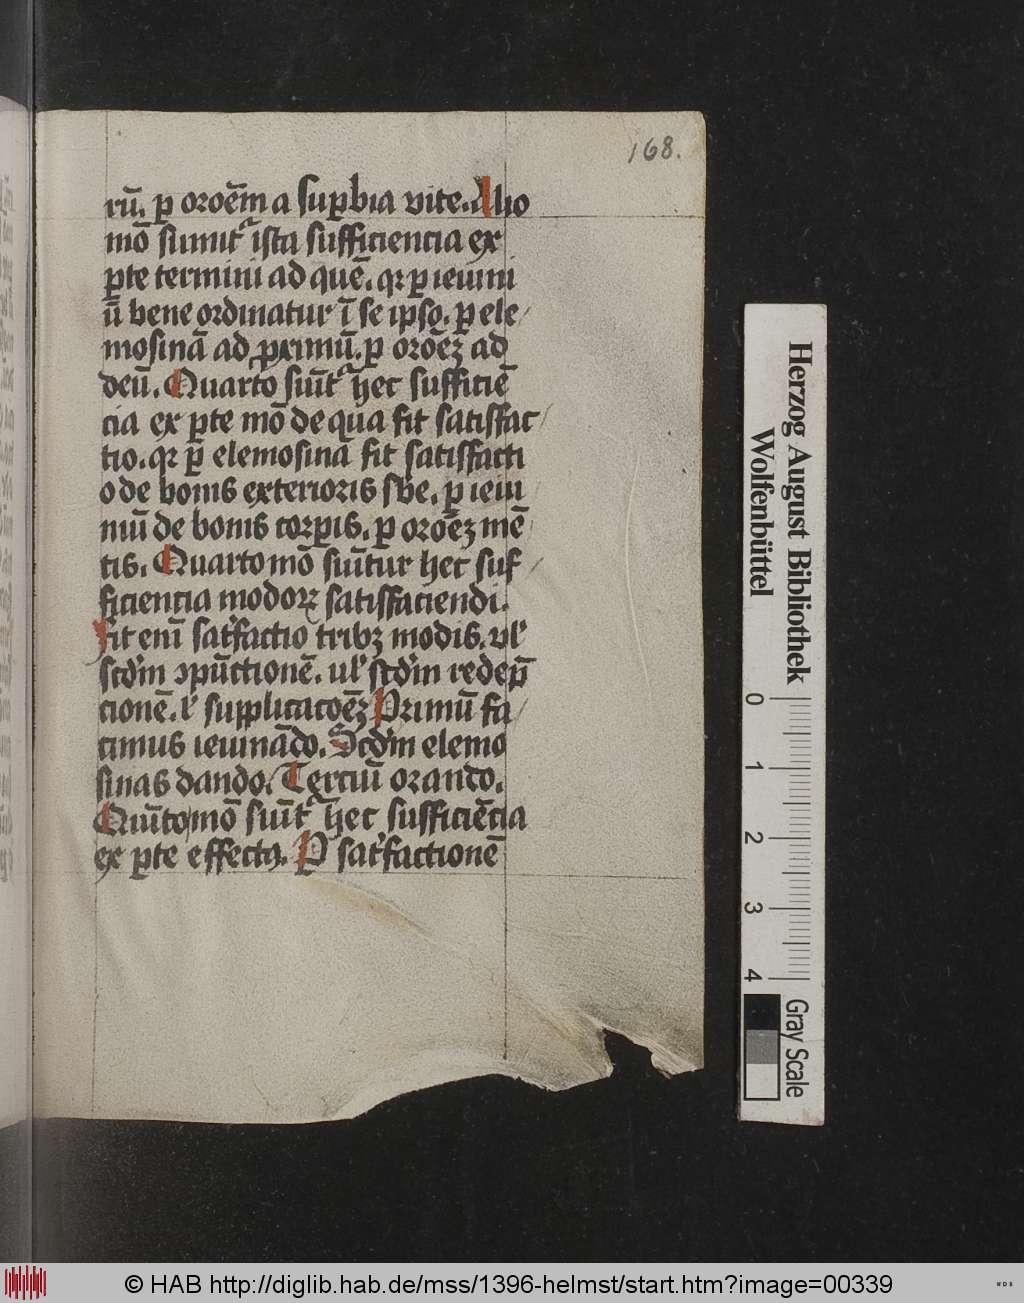 168.
rū. ꝑ oroēm a suꝑbia vite. Alio
mō sumit᷑ ista sufficiencia ex
ꝑte termini ad quē. qꝛ ꝑ ieiuni
ū bene ordinatur ī se ipso. ꝑ ele/
mosinā ad ꝓximū. ꝑ oroēꝫ ad
deū. Quarto sūit᷑ hec sufficiē
cia ex ꝑte mō de qua fit satisfac/
tio. qꝛ ꝑ elemosinā fit satisfacti
o de bonis exterioris sbe. ꝑ ieiu/
niū de bonis corꝑis. ꝑ oroēꝫ mē/
tis. Quarto mō siūtur hec suf/
ficiencia modoꝝ satisfaciendi.
Fit enī satˀfactio tribꝫ modis. vlˀ
scd̄m ɔpūctionē. ulˀ scd̄m redep̄
cionē. lˀ supplicacoēꝫ Primū fa/
cimus ieiunādo. Scd̄m elemo
sinas dando. Terciū orando.
Quīto mō siūt᷑ hec sufficiēcia
ex ꝑte effectꝫ. P satˀfactionē
Herzog August Bibliothek
Wolfenbüttel
0 1 2 3 4
Gray Scale
© HAB http://diglib.hab.de/mss/1396-helmst/start.htm?image=00339
WDB